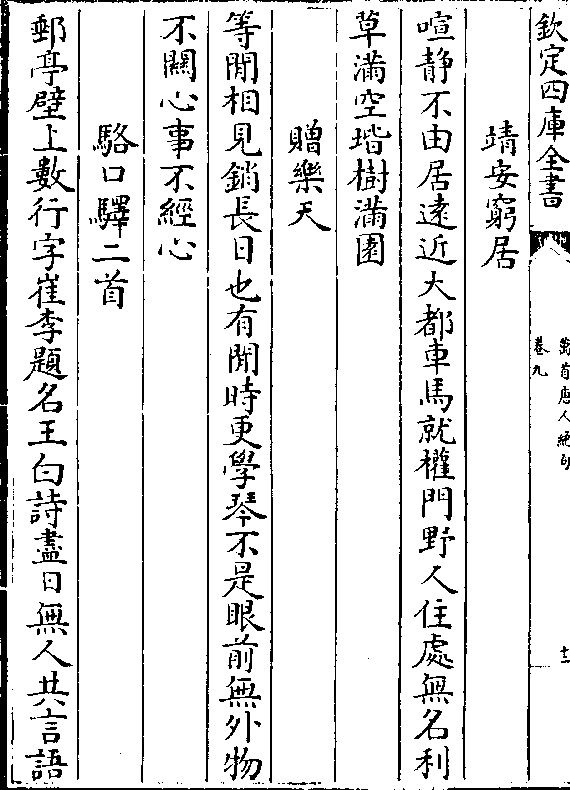 欽定四庫全書
萬首唐人絕句
卷九
十二
靖安窮居
喧静不由居遠近大都車馬就權門野人住處無名利
草滿空堦樹滿園
贈樂天
等閒相見銷長日也有閒時更學琴不是眼前無外物
不關心事不經心
駱口驛二首
郵亭壁上數行字崔李題名王白詩盡日無人共言語